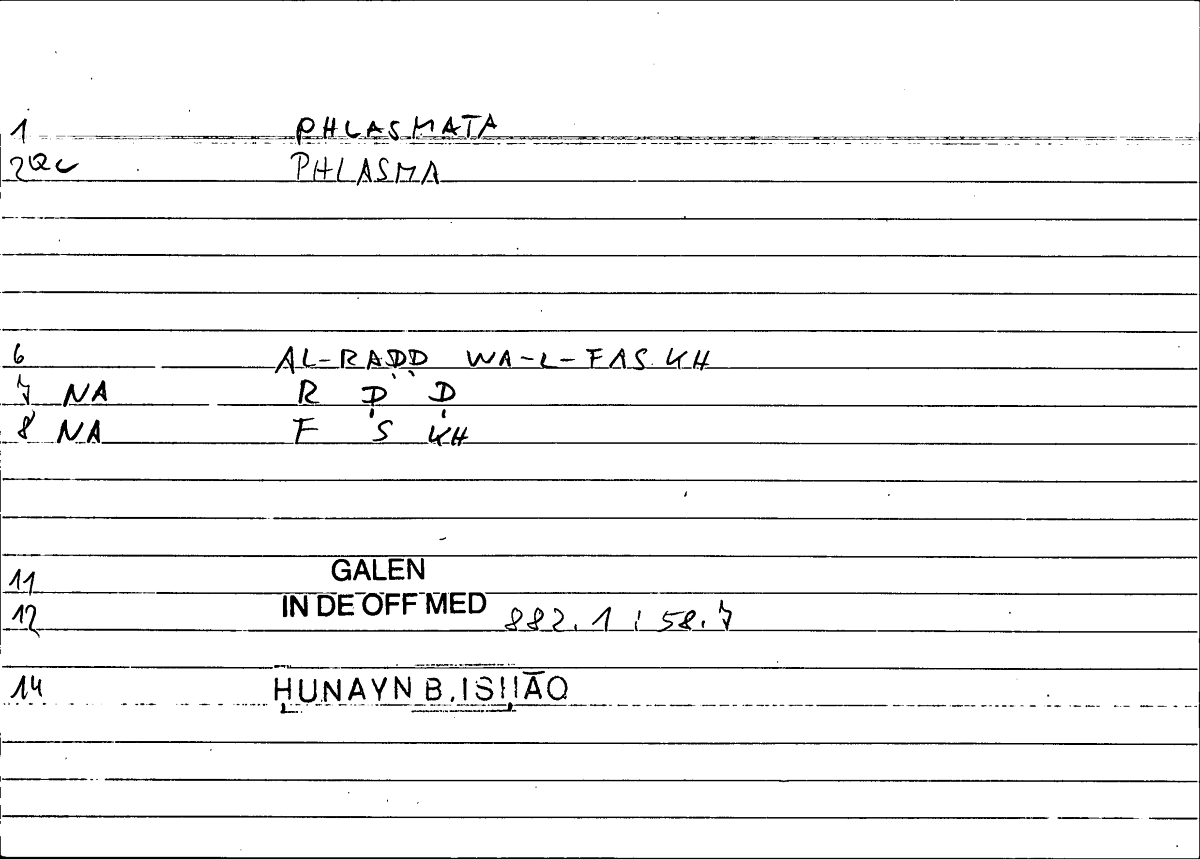 1 PHLASMATA
2QC PHLASMA
6 AL-RAḌḌ WA-L-FASKH
7 NA R Ḍ Ḍ
8 NA F S KH
11 GALEN
12 IN DE OFF MED 882.1 : 58.7
14 ḤUNAYN B. ISḤĀQ